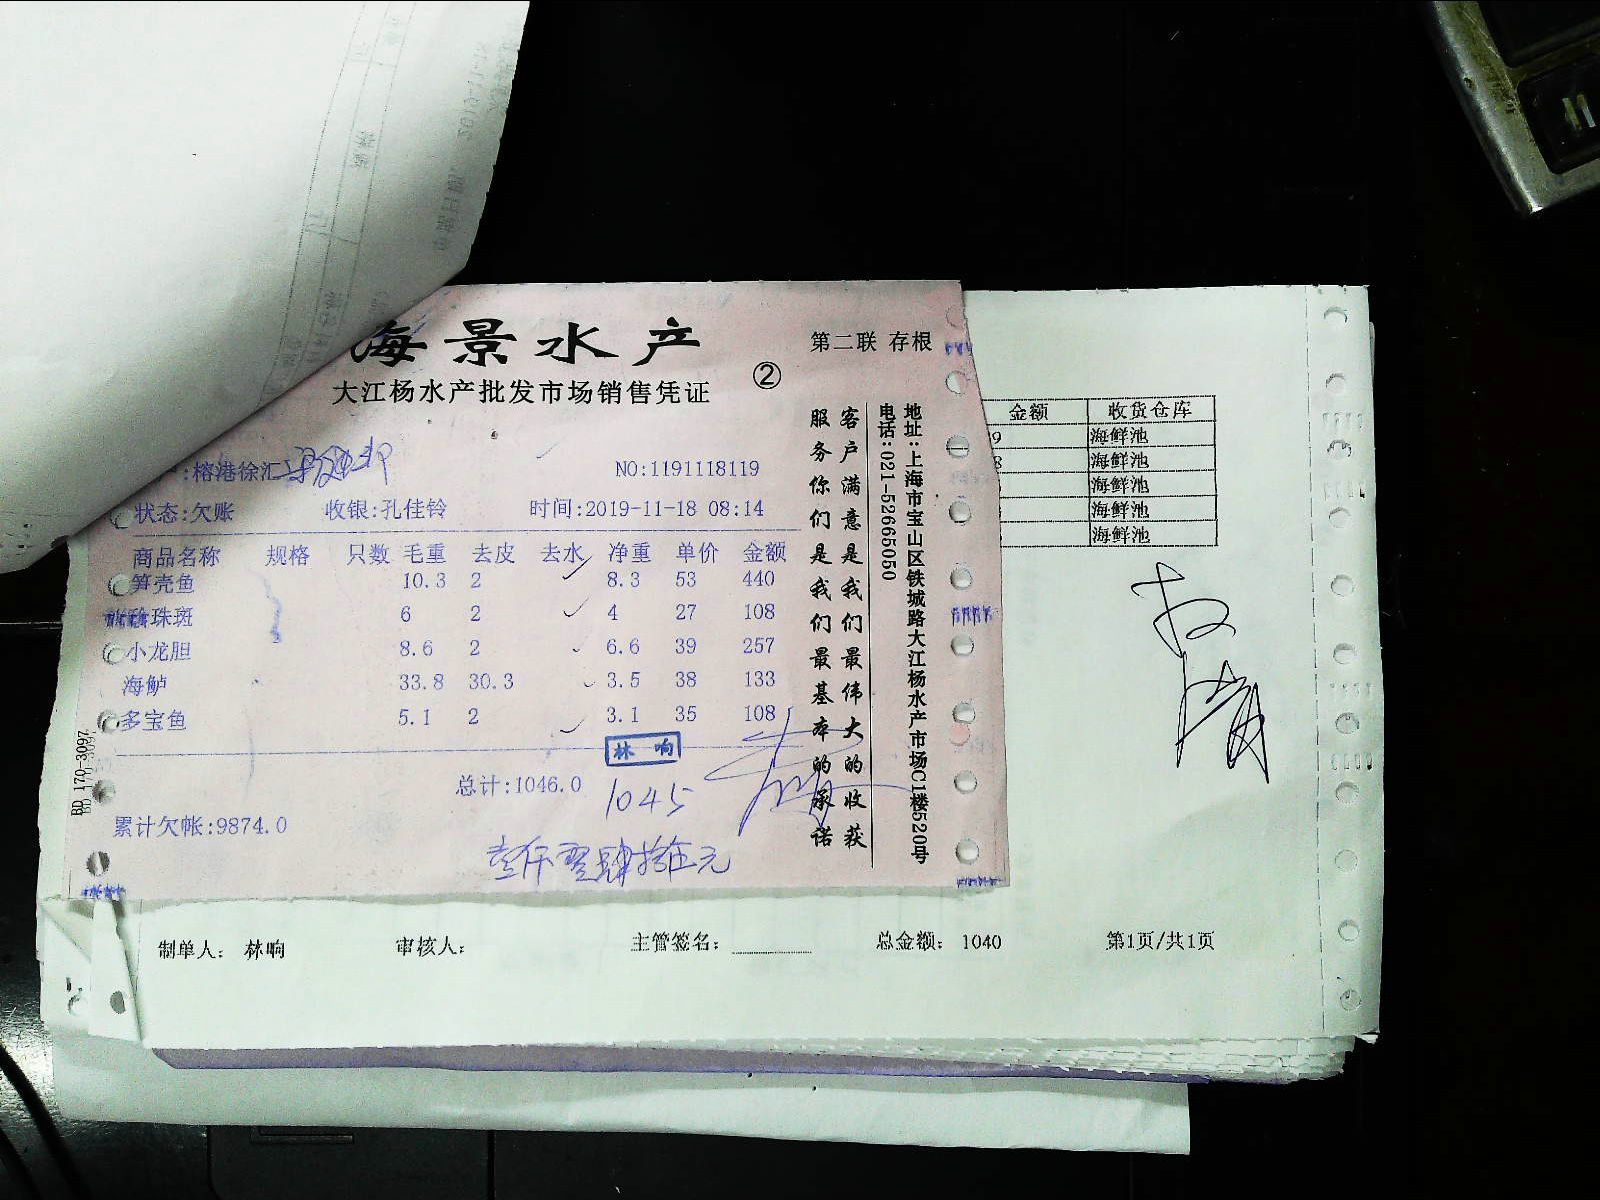 海景水产
大江杨水产批发市场销售凭证
②
第二联 存根
:榕港徐汇
NO:1191118119
状态:欠账 收银:孔佳铃 时间:2019-11-18 08:14
商品名称 规格 只数 毛重 去皮 去水 净重 单价 金额
笋壳鱼 10.3 2 8.3 53 440
珍珠斑 6 2 4 27 108
小龙胆 8.6 2 6.6 39 257
海鲈 33.8 30.3 3.5 38 133
多宝鱼 5.1 2 3.1 35 108
林响
总计:1046.0
1045
累计欠帐:9874.0
壹仟零肆拾伍元
客户满意是我们最伟大的收获
服务你们是我们最基本的承诺
地址:上海市宝山区铁城路大江杨水产市场C1楼520号
电话:021-52665050
BD 170-3097
金额 收货仓库
9 海鲜池
8 海鲜池
海鲜池
海鲜池
海鲜池
制单人: 林响 审核人: 主管签名: 总金额: 1040 第1页/共1页